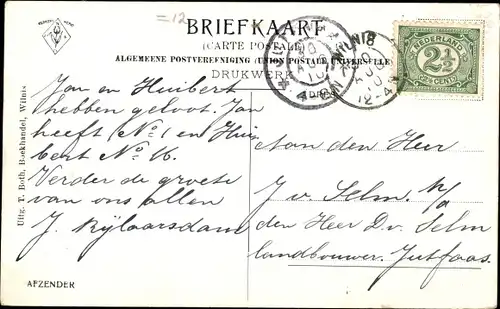 =12
BRIEFKAART
(CARTE POSTALE)
ALGEMEENE POSTVEREENIGING (UNION POSTALE UNIVERSELLE)
DRUKWERK
NEDERLAND
2½
CENT
12-4
Jan en Huibert
hebben geloot. Jan
heeft No 1 en Hui
bert No 16.
Verder de groete
van ons allen
J. Rijlaarsdam
Aan den Heer
J. v. Selm. p/a
den Heer D. v. Selm
landbouwer. Jutfaas.
Uitg. T. Both, Boekhandel, Wilnis
AFZENDER